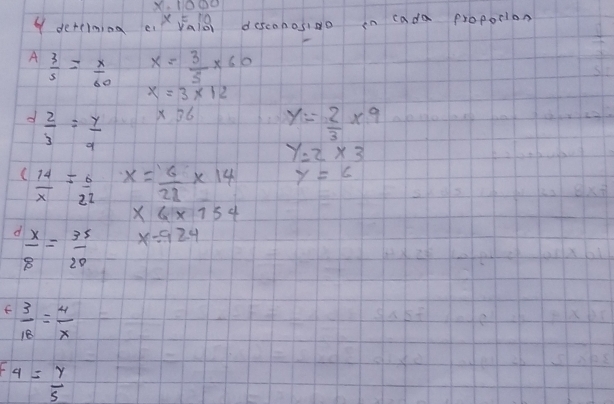 x. 1000
x = 10
4 determina el valor desconosido en cada proporcion
A 3/5 = x/60 x = 3/5 x 60
x = 3 x 12
x 36
d 2/3 = y/9 y = 2/3 x 9
y = 2 x 3
y = 6
c 14/x = 6/22 x = 6/22 x 14
x 6 x 154
x = 924
d x/8 = 35/20
3/18 = 4/x
F 4 = y/5